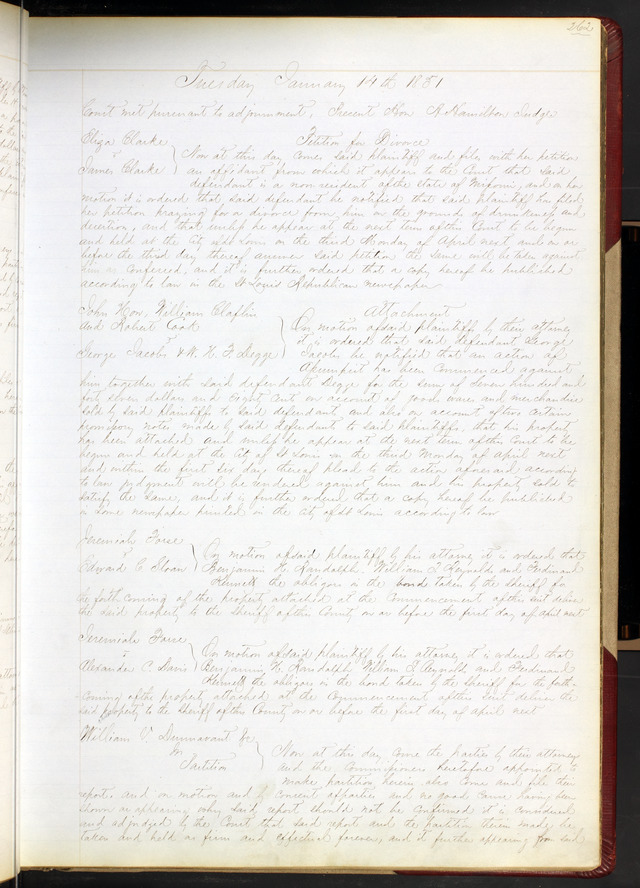 262
Tuesday January 14th 1851
Court met pursuant to adjournment, Present Hon A Hamilton Judge
Eliza Clarke
vs
James Clarke
Petition for Divorce
Now at this day comes said plaintiff and files with her petition
an affidavit from which it appears to the Court that said
defendant is a non resident of the State of Missouri, and on her
motion it is ordered that said defendant be notified that said plaintiff has filed
her petition praying for a divorce from him on the grounds of drunkeness and
desertion, and that unless he appear at the next term of this Court to be begun
and held at the City of St Louis on the third Monday of April next and on or
before the third day thereof answer said petition the same will be taken against
him as confessed, and it is further ordered that a copy hereof be published
according to law in the St Louis Republican newspaper
John How, William Claflin
and Robert Cook
vs
George Jacobs & W. H. F. Legge
Attachment
On motion of said plaintiffs by their attorney
it is ordered that said defendant George
Jacobs be notified that an action of
Assumpsit has been commenced against
him together with said defendant Legge for the sum of Seven hundred and
fort seven dollars and Eight Cents on account of goods wares and merchandise
sold by said plaintiffs to said defendants, and also on account of two certain
promissory notes made by said defendants to said plaintiffs, that his property
has been attached and unless he appear at the next term of this Court to be
begun and held at the City of St Louis on the third Monday of April next
and within the first six days thereof plead to the action aforesaid according
to law judgment will be rendered against him and his property sold to
satisfy the same, and it is further ordered that a copy hereof be published
in some newspaper printed in the City of St Louis according to law
Jeremiah Forse
vs
Edward C. Sloan
On motion of said plaintiff by his attorney it is ordered that
Benjamin H. Randolph, William I Reynolds and Ferdinand
Kennett the obligors in the bond taken by the Sheriff for
the forth coming of the property attached at the commencement of this suit deliver
the said property to the Sheriff of this County on or before the first day of April next
Jeremiah Forse
vs
Alexander C. Davis
On motion of said plaintiff by his attorney it is ordered that
Benjamin H. Randolph William I Reynolds and Ferdinand
Kennett the obligors in the bond taken by the Sheriff for the forth
coming of the property attached at the commencement of this suit deliver the
said property to the Sheriff of this County on or before the first day of April next
William V. Dunnavant &c
In
Partition
Now at this day come the parties by their attorneys
and the Commissioners heretofore appointed to
make partition herein also come and file their
report, and on motion and by consent of parties and no good cause having been
shown or appearing why said report should not be confirmed it is considered
and adjudged by the Court that said report and the partition therein made be
taken and held as firm and effectual forever, and it further appearing from said